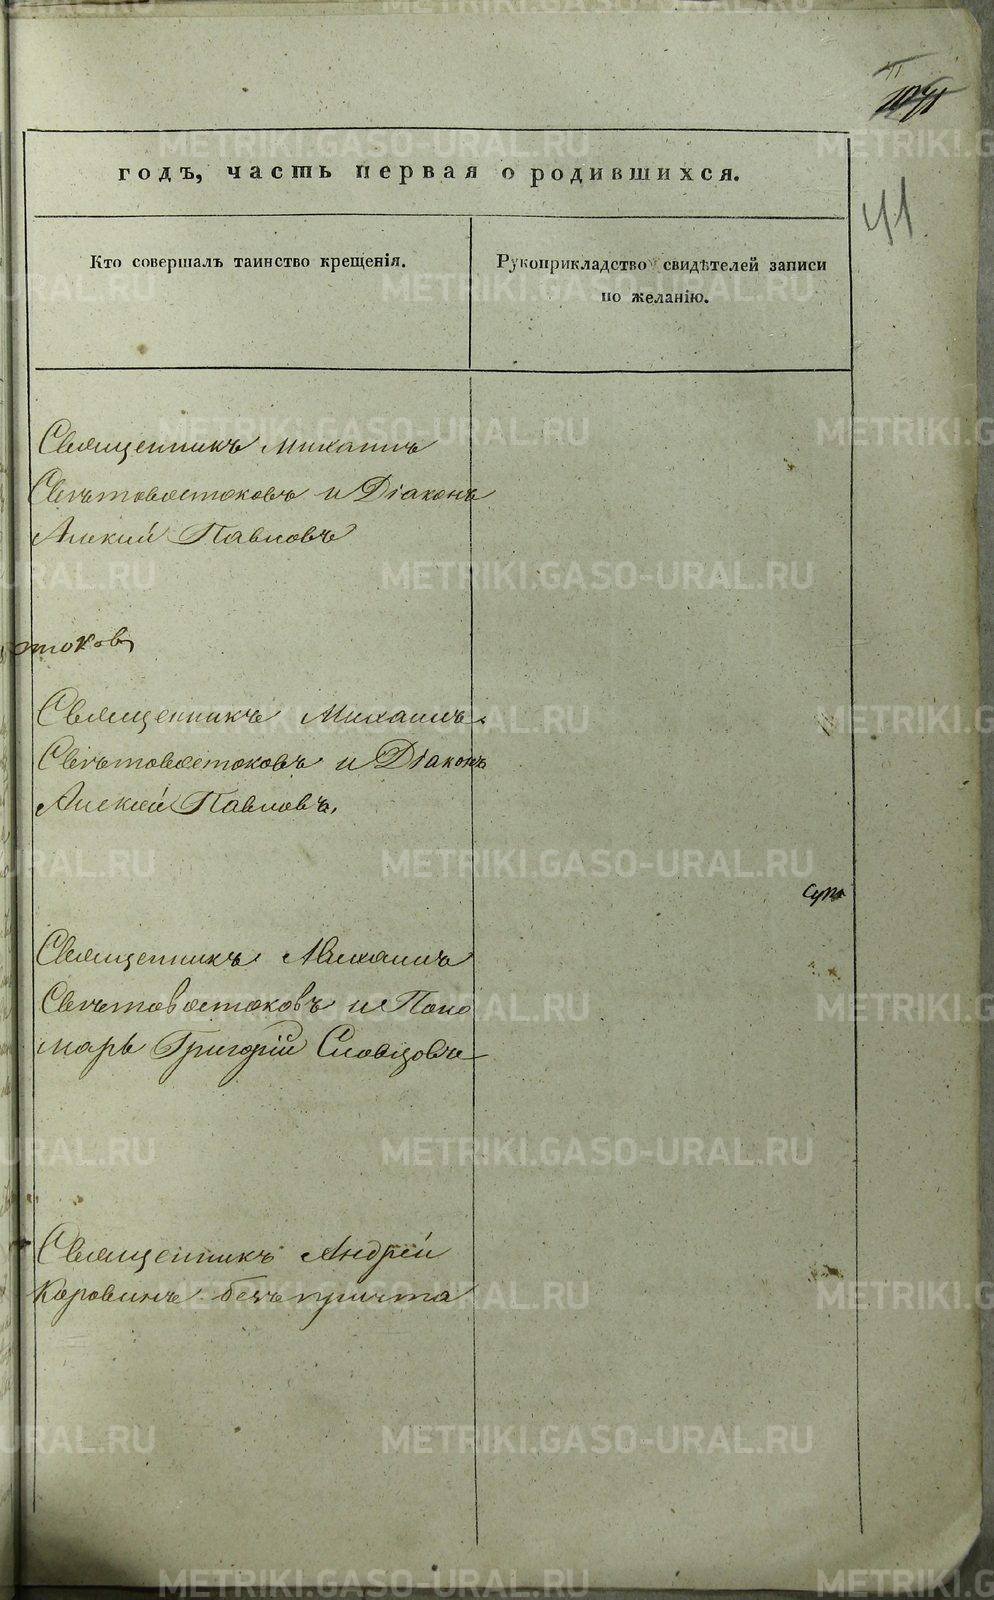 41
годъ, часть первая о родившихся.
41
Кто совершалъ таинство крещенія.
Рукоприкладство свидѣтелей записи
по желанію.
Священникъ Михаилъ
Свѣтовостоковъ и Діаконъ
Алекѣй Павловъ
стоков
Священникъ Михаилъ
Свѣтовостоковъ и Діаконъ
Алексѣй Павловъ,
Священникъ Михаилъ
Свѣтовостоковъ и Поно
марь Григорій Словцовъ
Священникъ Андрей
Коровинъ безъ причта
METRIKI.GASO-URAL.RU